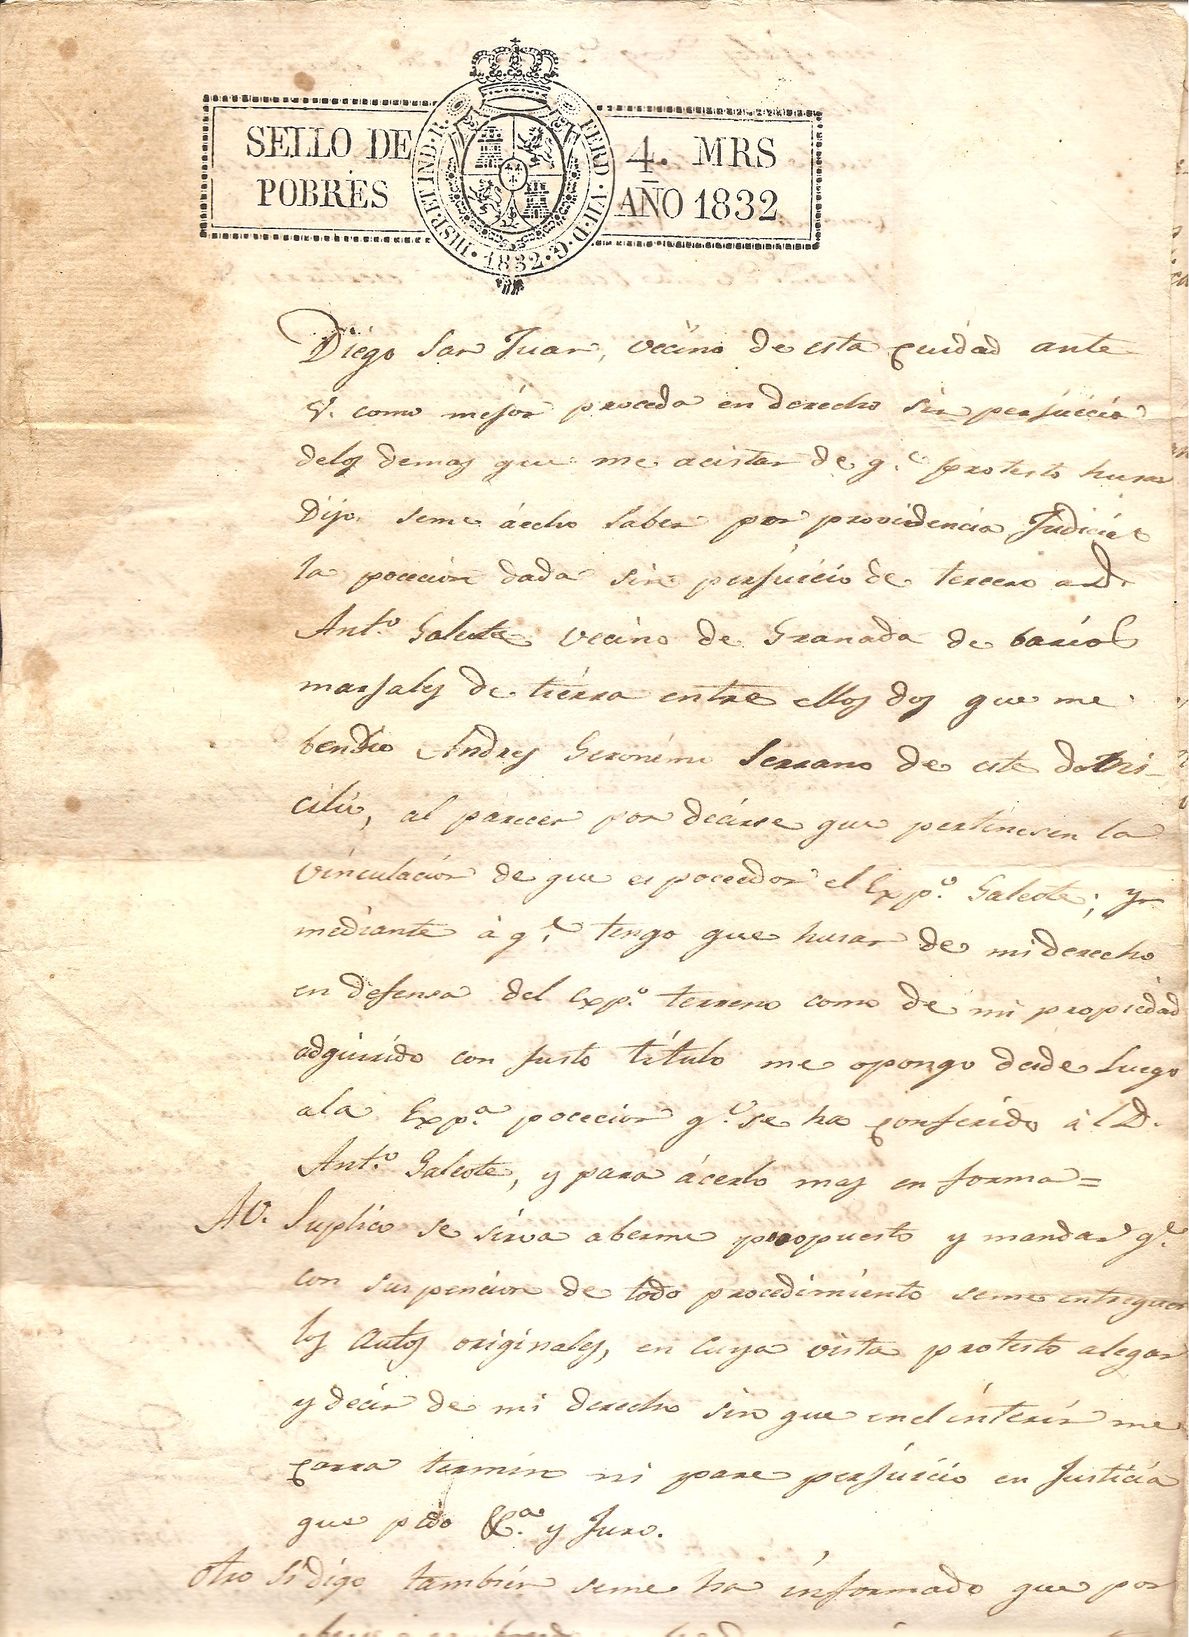 SELLO DE POBRES
4. MRS
AÑO 1832
HISP·ET IND·R· FERD·VII·D·G·1832·
Diego San Juan, vecino de esta çuidad ante
V. como mejor proceda en derecho sin perjuicio
delos demas que me acistan de q.e protesto husar
Dijo seme áecho saber por providencia Judicial
la pocecion dada sin perjuicio de tercero a D.
Ant.o Galeote vecino de Granada de barios
marjales de tierra entre ellos dos que me
bendio Andres Geronimo Serrano de este domi-
cilio, al parecer por decirse que pertinesen la
vinculacion de que es poceedor el Exp.o Galeote; y
mediante á q.e tengo que husar de mi derecho
en defensa del Exp.o terreno como de mi propiedad
adquirido con justo titulo me opongo desde luego
ala Exp.a pocecion q.e se ha çonferido á el D.
Ant.o Galeote, y para ácerlo mas en forma=
AV. Suplico se sirva aberme propuesto y mandar q.e
con suspencion de todo procedimiento seme entreguen
los autos originales, en cuya vista protesto alegar
y decir de mi derecho sin que enel interin me
çorra termino ni pare perjuicio en Justicia
que pido &.a y Juro.
Otro Si digo tambien seme ha informado que por